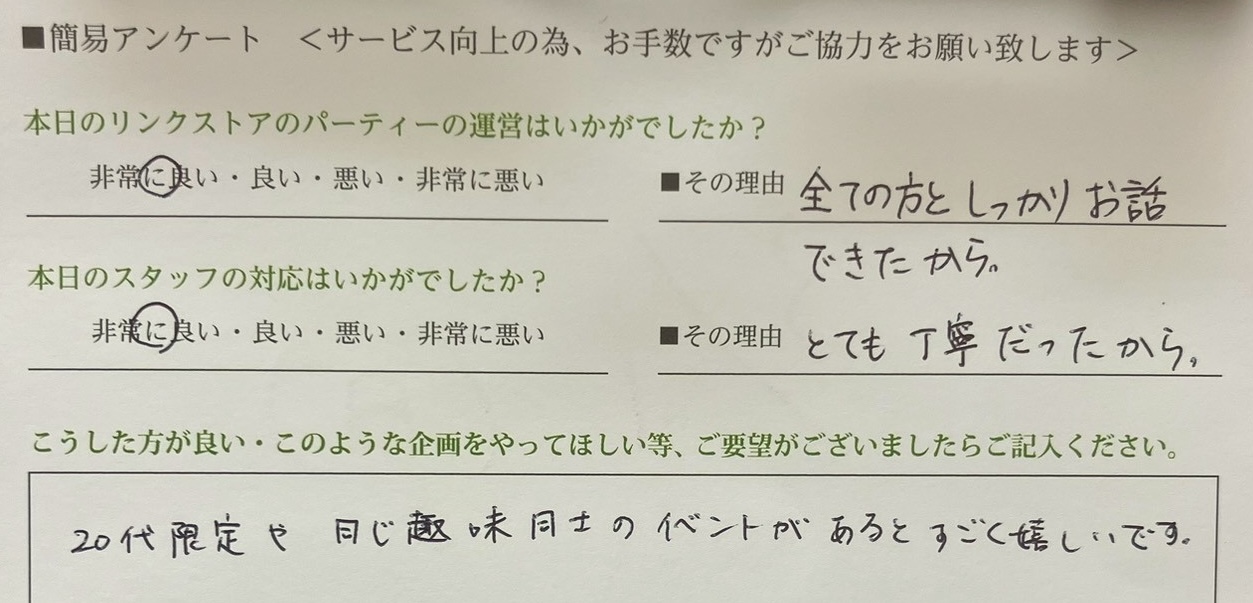 ■簡易アンケート ＜サービス向上の為、お手数ですがご協力をお願い致します＞
本日のリンクストアのパーティーの運営はいかがでしたか？
非常に良い・良い・悪い・非常に悪い
■その理由 全ての方としっかりお話
できたから。
本日のスタッフの対応はいかがでしたか？
非常に良い・良い・悪い・非常に悪い
■その理由 とても丁寧だったから。
こうした方が良い・このような企画をやってほしい等、ご要望がございましたらご記入ください。
20代限定や同じ趣味同士のイベントがあるとすごく嬉しいです。